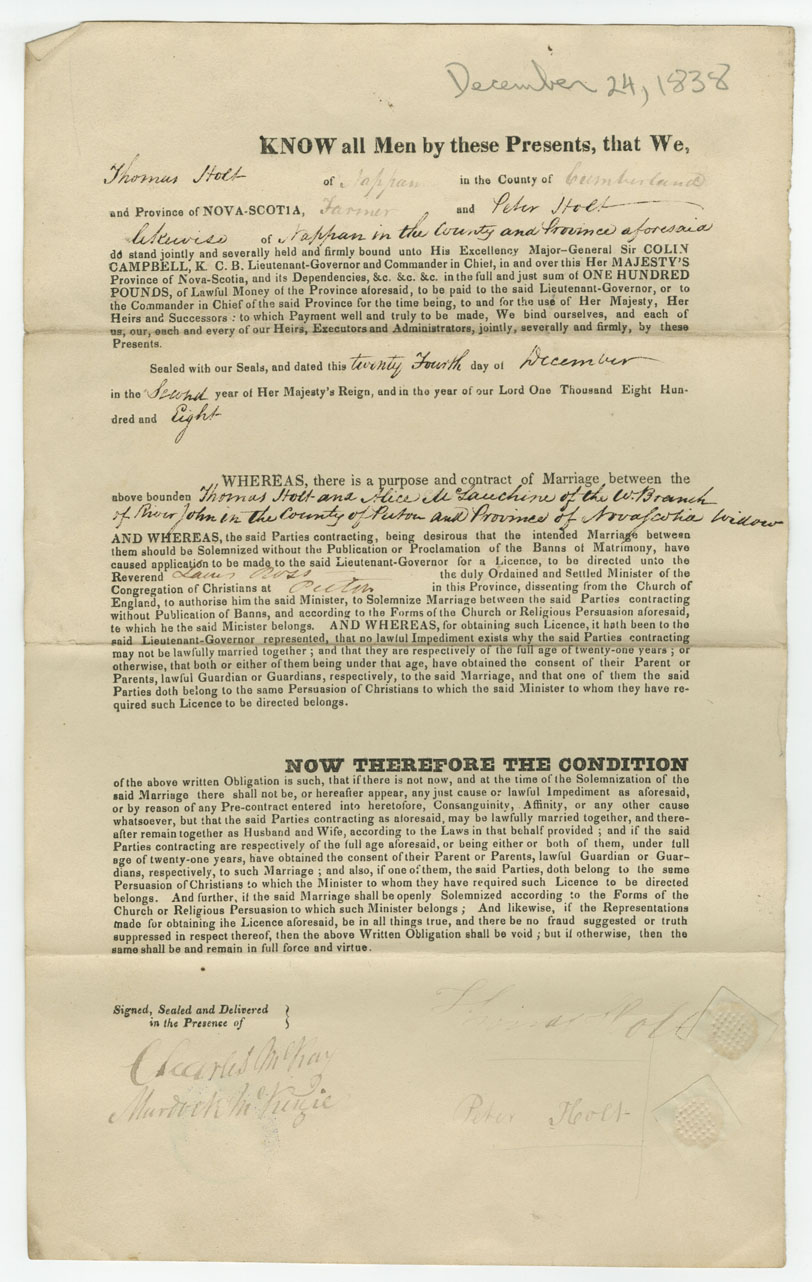 December 24, 1838
KNOW all Men by these Presents, that We,
Thomas Holt of Nappan in the County of Cumberland
and Province of NOVA-SCOTIA, Farmer and Peter Holt
likewise of Nappan in the County and Province aforesaid
do stand jointly and severally held and firmly bound unto His Excellency Major-General Sir COLIN
CAMPBELL, K. C. B. Lieutenant-Governor and Commander in Chief, in and over this Her MAJESTY'S
Province of Nova-Scotia, and its Dependencies, &c. &c. &c. in the full and just sum of ONE HUNDRED
POUNDS, of Lawful Money of the Province aforesaid, to be paid to the said Lieutenant-Governor, or to
the Commander in Chief of the said Province for the time being, to and for the use of Her Majesty, Her
Heirs and Successors : to which Payment well and truly to be made, We bind ourselves, and each of
us, our, each and every of our Heirs, Executors and Administrators, jointly, severally and firmly, by these
Presents.
Sealed with our Seals, and dated this twenty Fourth day of December
in the Second year of Her Majesty's Reign, and in the year of our Lord One Thousand Eight Hun-
dred and Eight
WHEREAS, there is a purpose and contract of Marriage between the
above bounden Thomas Holt and Alice McLauchine of the W. Branch
of River John in the County of Picton and Province of Nova Scotia Widow
AND WHEREAS, the said Parties contracting, being desirous that the intended Marriage between
them should be Solemnized without the Publication or Proclamation of the Banns of Matrimony, have
caused application to be made to the said Lieutenant-Governor for a Licence, to be directed unto the
Reverend Ross the duly Ordained and Settled Minister of the
Congregation of Christians at Picton in this Province, dissenting from the Church of
England, to authorise him the said Minister, to Solemnize Marriage between the said Parties contracting
without Publication of Banns, and according to the Forms of the Church or Religious Persuasion aforesaid,
to which he the said Minister belongs. AND WHEREAS, for obtaining such Licence, it hath been to the
said Lieutenant-Governor represented, that no lawful Impediment exists why the said Parties contracting
may not be lawfully married together ; and that they are respectively of the full age of twenty-one years ; or
otherwise, that both or either of them being under that age, have obtained the consent of their Parent or
Parents, lawful Guardian or Guardians, respectively, to the said Marriage, and that one of them the said
Parties doth belong to the same Persuasion of Christians to which the said Minister to whom they have re-
quired such Licence to be directed belongs.
NOW THEREFORE THE CONDITION
of the above written Obligation is such, that if there is not now, and at the time of the Solemnization of the
said Marriage there shall not be, or hereafter appear, any just cause or lawful Impediment as aforesaid,
or by reason of any Pre-contract entered into heretofore, Consanguinity, Affinity, or any other cause
whatsoever, but that the said Parties contracting as aforesaid, may be lawfully married together, and there-
after remain together as Husband and Wife, according to the Laws in that behalf provided ; and if the said
Parties contracting are respectively of the full age aforesaid, or being either or both of them, under full
age of twenty-one years, have obtained the consent of their Parent or Parents, lawful Guardian or Guar-
dians, respectively, to such Marriage ; and also, if one of them, the said Parties, doth belong to the same
Persuasion of Christians to which the Minister to whom they have required such Licence to be directed
belongs. And further, if the said Marriage shall be openly Solemnized according to the Forms of the
Church or Religious Persuasion to which such Minister belongs ; And likewise, if the Representations
made for obtaining the Licence aforesaid, be in all things true, and there be no fraud suggested or truth
suppressed in respect thereof, then the above Written Obligation shall be void ; but if otherwise, then the
same shall be and remain in full force and virtue.
Signed, Sealed and Delivered
in the Presence of
Thomas Holt
Charles McKay
Murdock McKenzie
Peter Holt